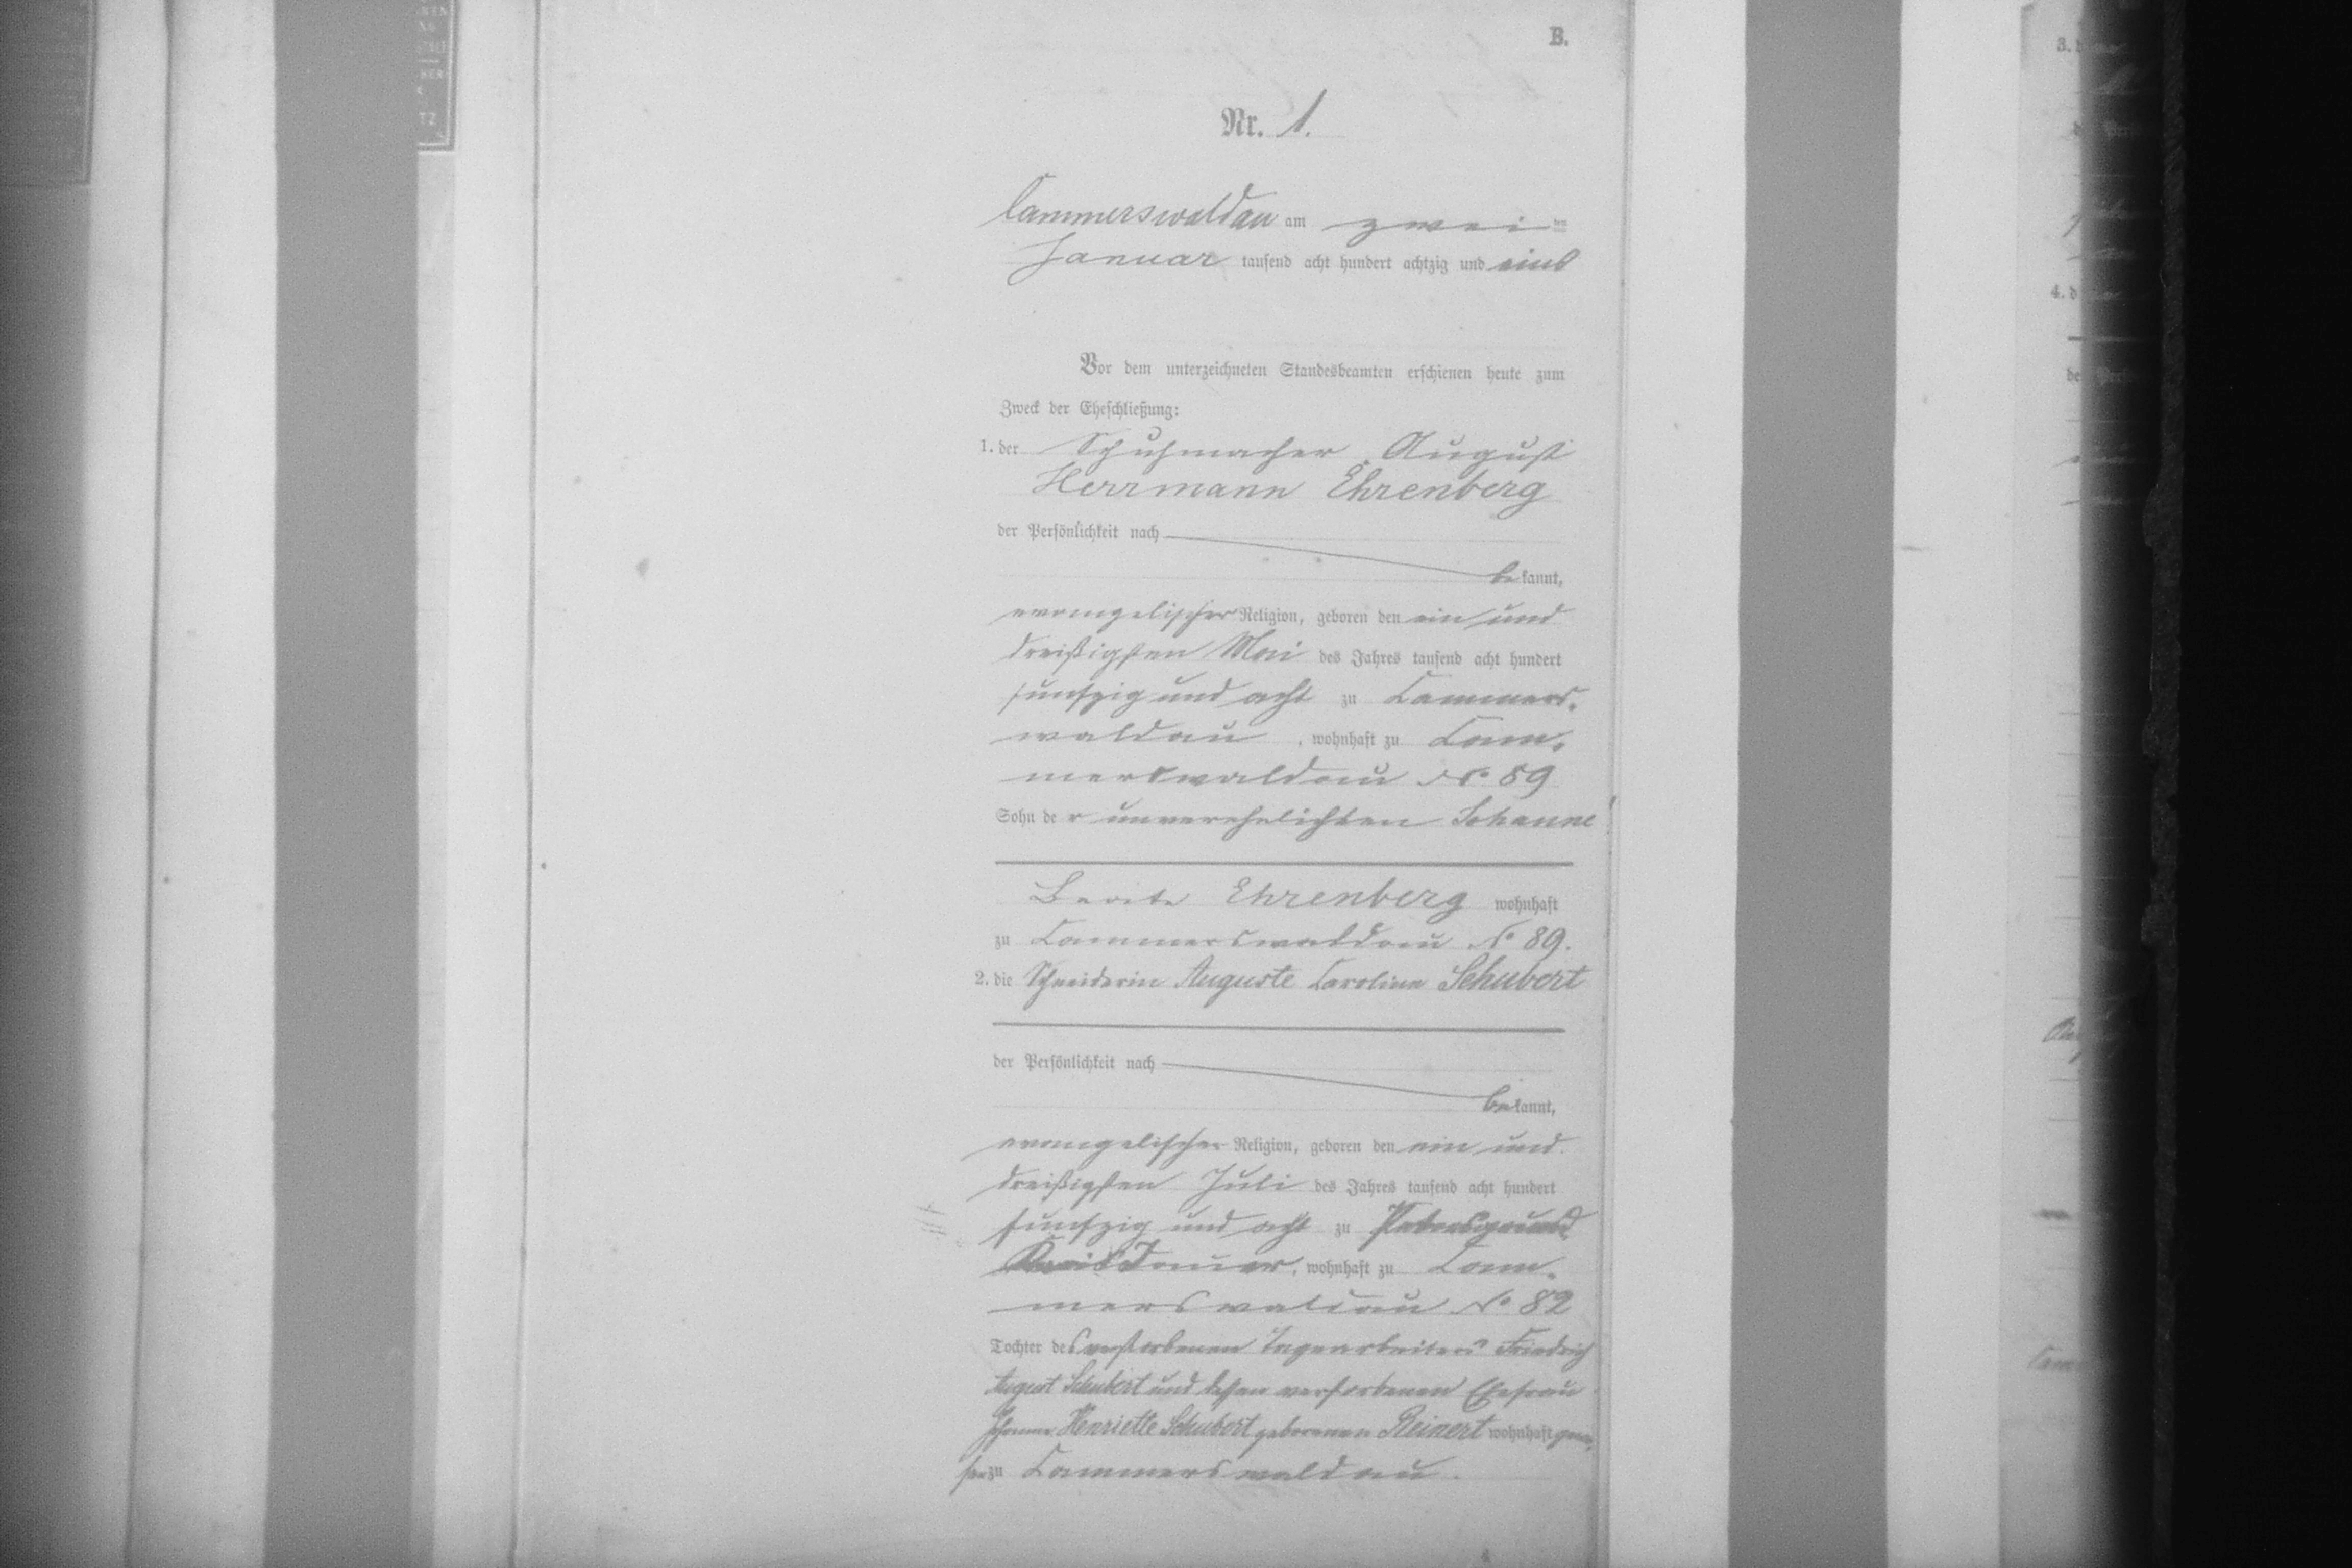 B.
Nr. 1.
Cammerswaldau am zwei ten
Januar tausend acht hundert achtzig und eins
Vor dem unterzeichneten Standesbeamten erschienen heute zum
Zweck der Eheschließung:
1. der Schuhmacher August
Herrmann Ehrenberg
der Persönlichkeit nach
bekannt,
evangelischer Religion, geboren den ein und
dreißigsten Mai des Jahres tausend acht hundert
funfzig und acht zu Cammers-
waldau, wohnhaft zu Cam-
merswaldau No 89
Sohn der unverehelichten Johanne
Beate Ehrenberg wohnhaft
zu Cammerswaldau No 89.
2. die Schneiderin Auguste Caroline Schubert
der Persönlichkeit nach
bekannt,
evangelischer Religion, geboren den ein und
dreißigsten Juli des Jahres tausend acht hundert
funfzig und acht zu Petersgrund
Kreis Jauer, wohnhaft zu Cam-
merswaldau No 82
Tochter des verstorbenen Tagearbeiters Friedrich
August Schubert und dessen verstorbenen Ehefrau
Johanne Henriette Schubert geborenen Reinert wohnhaft gewe-
sen zu Cammerswaldau.